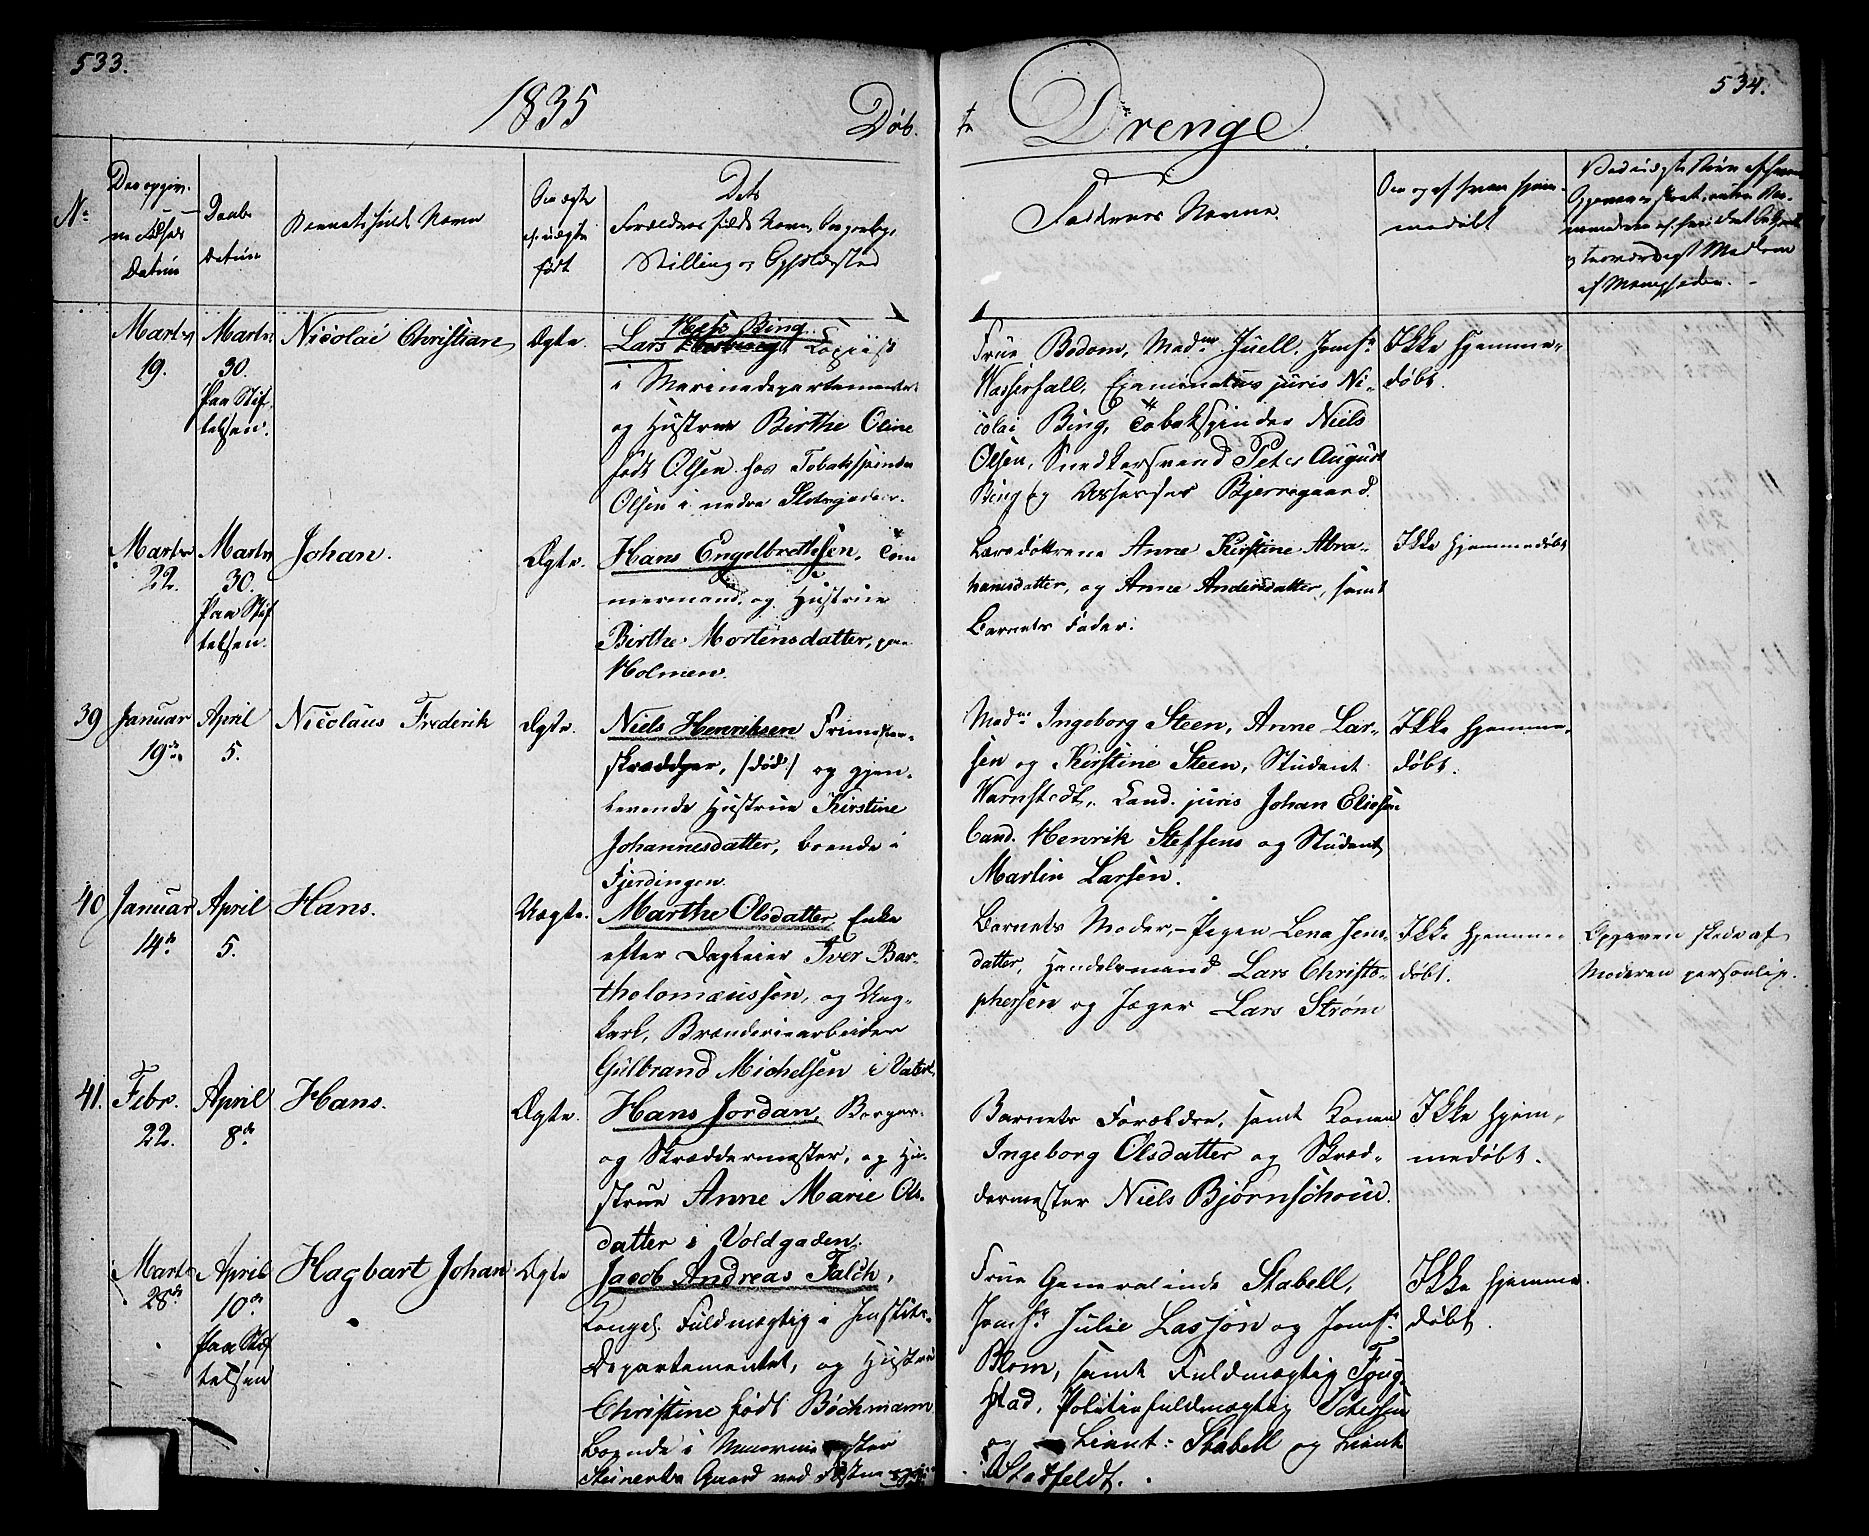 533.
534.
1835
Døb-
te
Drenge.
No
Den opgiv-
ne Fødsels
Datum
Daabs
Datum
Barnets fulde Navn
Om ægte
el. uægte
født
Dets
Forældres fulde Navn, Borgerlig
Stilling og Opholdssted
Faddernes Navne.
Om og af hvem hjem-
medøbt
af Menigheden.
Marts
19.
Marts
30.
Paa Stif-
telsen.
Nicolai Christian
Ægte.
Niels Bing
Lars Copiist
i Marinedepartementet
og Hustrue Birthe Oline
født Olsen hos Tobaksspinder
Olsen i nedre Slotsgaden.
Frue Bodom, Madme Juell, Jomf.
Wasserfall, Examinatus juris Ni-
colai Bing, Tobakspinder Niels
Olsen, Snedkersvend Peter August
Bing og Assessor Bjerregaard.
Ikke hjemme-
døbt.
Marts
22.
Marts
30.
Paa Stif-
telsen.
Johan.
Ægte.
Hans Engelbrethsen, Tøm-
mermand, og Hustrue
Birthe Mortensdatter, paa
Holmen.
Anne Kirstine Abra-
hamsdatter, og Anne Andersdatter, samt
Barnets Fader.
Ikke hjemmedøbt
39
Januar
19de
April
5.
Nicolaus Frederik
Ægte.
Niels Henriksen Frimester-
skrædder, /død/ og gjen-
levende Hustrue Kirstine
Johannesdatter, boende i
Fjerdingen.
Madme Ingeborg Steen, Anne Lar-
sen og Kirstine Steen, Student
Warnstedt, Cand. juris Johan Eliesen
Cand. Henrik Steffens og Student
Martin Larsen.
Ikke hjemme-
døbt.
40
Januar
14de
April
5.
Hans.
Uægte.
Marthe Olsdatter, Enke
efter Dagleier Iver Bar-
tholomæussen, og Ung-
karl, Brænderiearbeider
Gulbrand Michelsen i Vaterl.
Barnets Moder, Pigen Lena Jens-
datter, Handelsmand Lars Christo-
phersen og Jæger Lars Strøm
Ikke hjemme-
døbt.
Opgaven skede af
Moderen personlig.
41.
Febr.
22.
April
8de
Hans.
Ægte.
Hans Jordan, Borger
og Skræddermester, og Hu-
strue Anne Marie Ols-
datter i Voldgaden.
Barnets Forældre, samt Konen
Ingeborg Olsdatter og Skræd-
dermester Niels Bjørnschou.
Ikke hjem-
medøbt.
Marts
28de
April
10de
Paa Stif-
telsen
Hagbart Johan
Ægte
Jacob Andreas Falch,
Kongel. Fuldmægtig i Justits-
Departementet, og Hustrue
Christine født Bøckmann
Boende i Muurmester
Steinerts Gaard ved
Frue Generalinde Stabell,
Jomf. Julie Lasson og Jomf.
Blom, samt Fuldmægtig Foug-
stad, Politiefuldmægtig
og Lieut: Stabell og Lieut
Stadfeldt.
Ikke hjemme-
døbt.